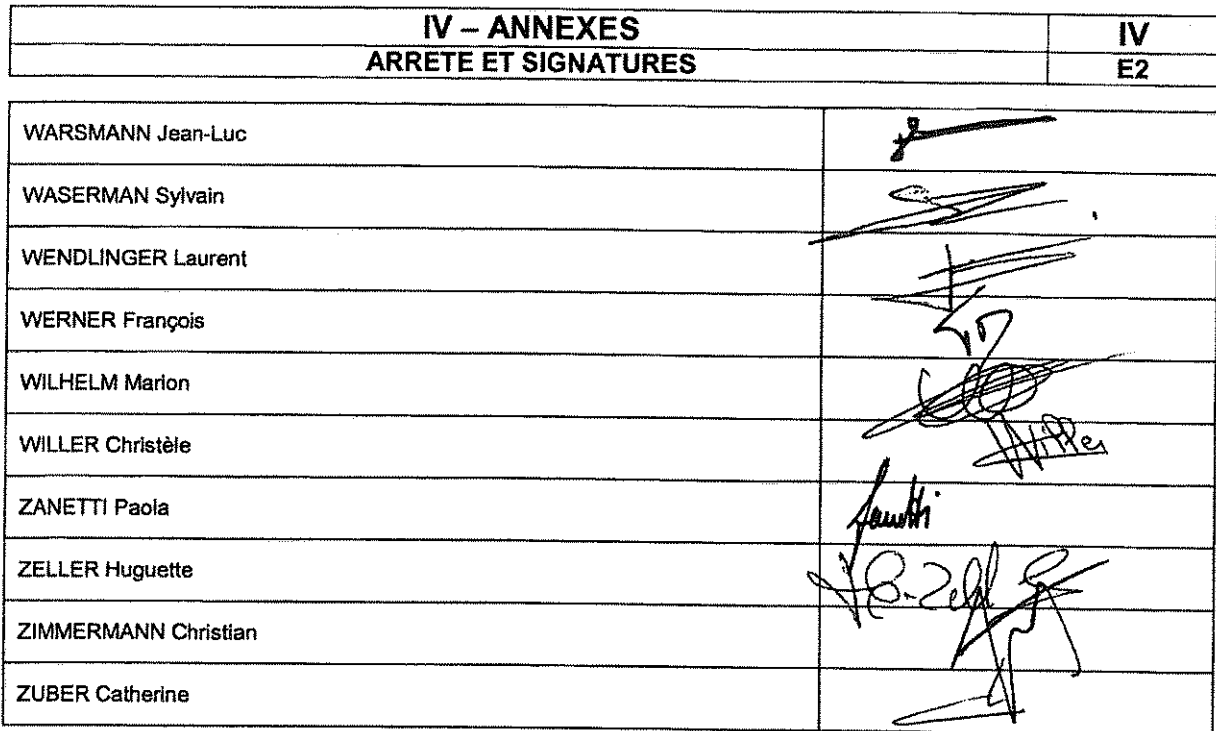 IV – ANNEXES IV
ARRETE ET SIGNATURES E2
WARSMANN Jean-Luc
WASERMAN Sylvain
WENDLINGER Laurent
WERNER François
WILHELM Marion
WILLER Christèle Willer
ZANETTI Paola Zanetti
ZELLER Huguette
ZIMMERMANN Christian
ZUBER Catherine